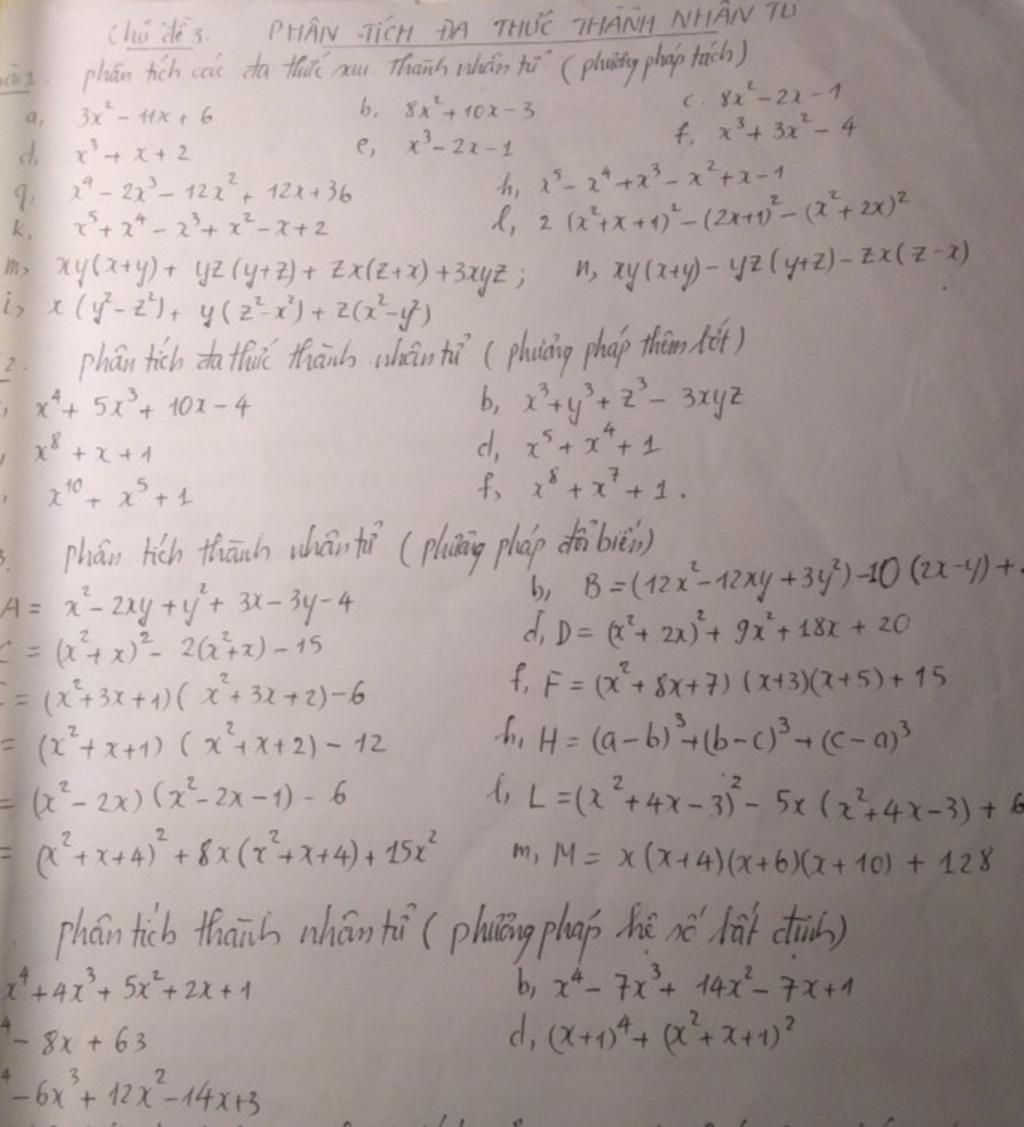 Chủ đề 3. PHÂN TÍCH ĐA THỨC THÀNH NHÂN TỬ
phân tích các đa thức sau thành nhân tử (phương pháp tách)
a, 3x² - 11x + 6 b, 8x² + 10x - 3 c. 8x² - 2x - 1
d, x³ + x + 2 e, x³ - 2x - 1 f, x³ + 3x² - 4
g, x⁴ - 2x³ - 12x² + 12x + 36 h, x⁵ - x⁴ + x³ - x² + x - 1
k, x⁵ + x⁴ - x³ + x² - x + 2 l, 2 (x² + x + 1)² - (2x+1)² - (x² + 2x)²
m, xy(x+y) + yz(y+z) + zx(z+x) + 3xyz; n, xy(x+y) - yz(y+z) - zx(z-x)
i, x(y² - z²) + y(z² - x²) + z(x² - y²)
2. phân tích đa thức thành nhân tử (phương pháp thêm bớt)
x⁴ + 5x³ + 10x - 4 b, x³ + y³ + z³ - 3xyz
x⁸ + x + 1 d, x⁵ + x⁴ + 1
x¹⁰ + x⁵ + 1 f, x⁸ + x⁷ + 1.
3. phân tích thành nhân tử (phương pháp đổi biến)
A = x² - 2xy + y² + 3x - 3y - 4 b, B = (12x² - 12xy + 3y²) - 10(2x-y) +
C = (x² + x)² - 2(x² + x) - 15 d, D = (x² + 2x)² + 9x² + 18x + 20
= (x² + 3x + 1)(x² + 3x + 2) - 6 f, F = (x² + 8x + 7)(x+3)(x+5) + 15
= (x² + x + 1)(x² + x + 2) - 12 h, H = (a-b)³ + (b-c)³ + (c-a)³
= (x² - 2x)(x² - 2x - 1) - 6 l, L = (x² + 4x - 3)² - 5x(x² + 4x - 3) + 6
= (x² + x + 4)² + 8x(x² + x + 4) + 15x² m, M = x(x+4)(x+6)(x+10) + 128
phân tích thành nhân tử (phương pháp hệ số bất định)
x⁴ + 4x³ + 5x² + 2x + 1 b, x⁴ - 7x³ + 14x² - 7x + 1
⁴ - 8x + 63 d, (x+1)⁴ + (x² + x + 1)²
⁴ - 6x³ + 12x² - 14x + 3